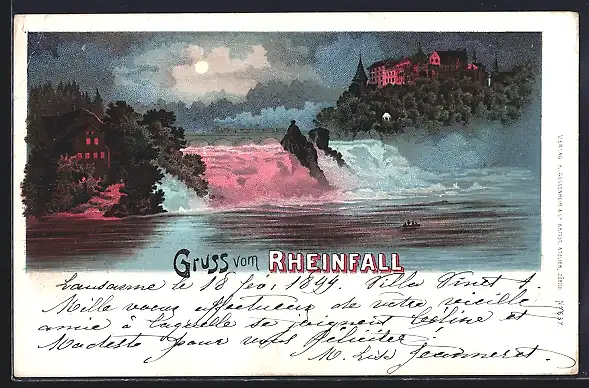 Gruss vom RHEINFALL
Lausanne le 18 fév. 1899. Villa Vinet 1.
Mille voeux affectueux de votre vieille
amie à laquelle se joignent Céline et
Modeste pour vous féliciter.
M. Jeanneret.
VERLAG
ZÜRICH